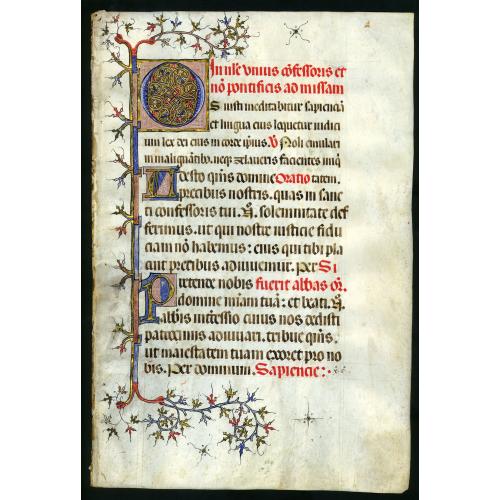 In nãe vnius cõfessoris et
nõ pontificis ad missam
OS iusti meditabitur sapienciã
et lingua eius loquetur iudici
um lex dei eius in corde ipsius. V̄ Noli emulari
in malignantibꝰ. neqꝫ zelaueris facientes iniq̃
Adesto q̃s domine Oratio tatem.
precibus nostris. quas in sanc
ti confessoris tui. N̄. solemnitate def
ferimus. ut qui nostre iusticie fidu
ciam nõ habemus: eius qui tibi pla
cuit precibus adiuuemur. per Si
Pretende nobis fuerit albas or̃.
domine mĩam tuã: et beati. N̄.
albẽis intercessio cuius nos dedisti
patrociniis adiuuari. tribue q̃s.
ut maiestatem tuam exoret pro no
bis. Per dominum. Sapiencie: